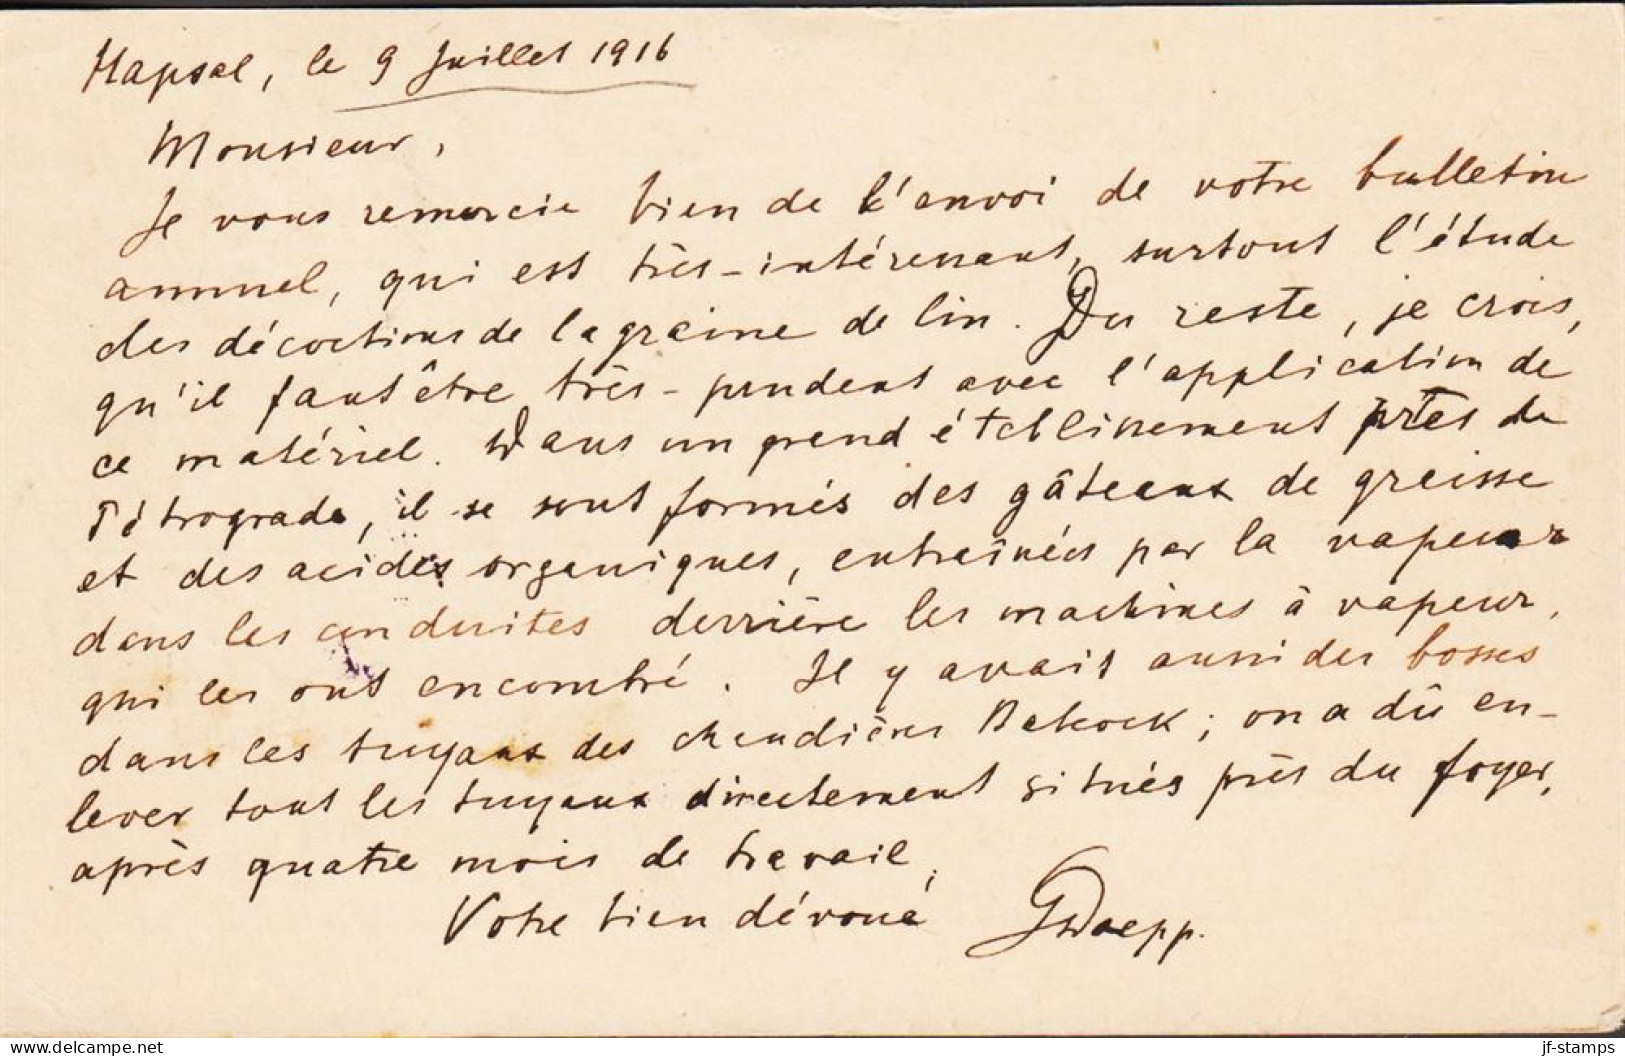 Hapsal, le 9 Juillet 1916
Monsieur,
Je vous remercie bien de l'envoi de votre bulletin
annuel, qui est très-intéressant, surtout l'étude
des décoctions de la graine de lin. Du reste, je crois,
qu'il faut être très-prudent avec l'application de
ce matériel. Dans un grand établissement près de
Pétrograde, il se sont formés des gâteaux de graisse
et des acides organiques, entraînés par la vapeur
dans les conduites derrière les machines à vapeur,
qui les ont encombré. Il y avait aussi des bosses
dans les tuyaux des chaudières Babcock; on a dû en-
lever tout les tuyaux directement situés près du foyer,
après quatre mois de travail.
Votre bien dévoué
delcampe.net
jf-stamps